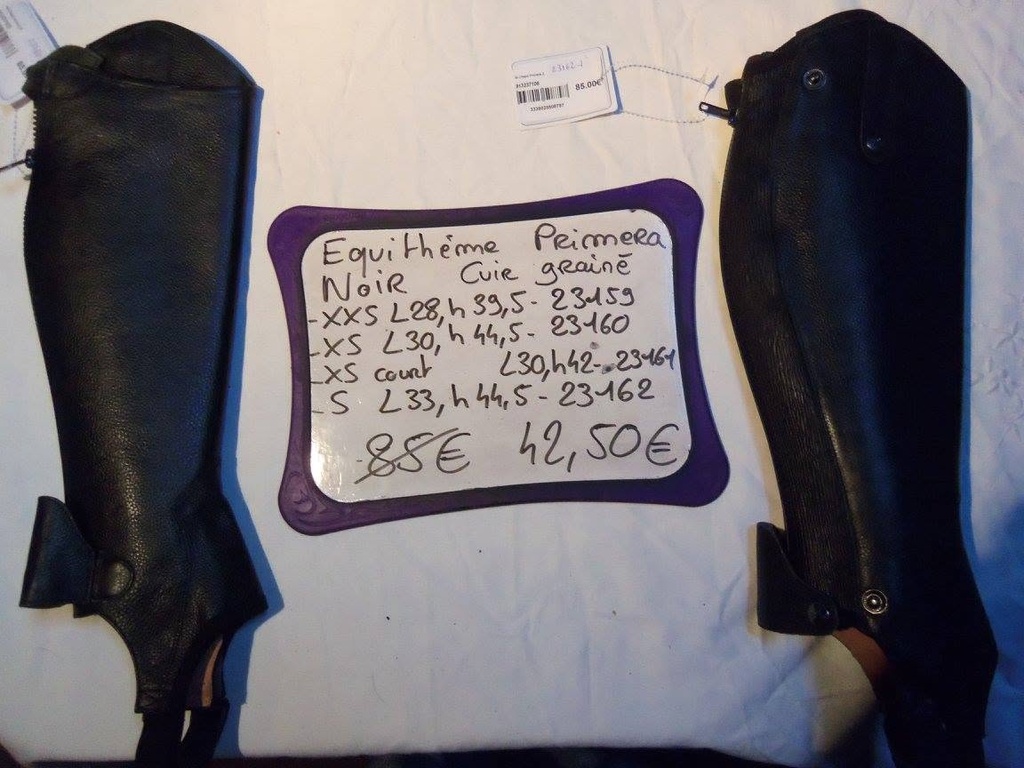 23162-1
85.00€
Equithème Primera
Noir Cuir grainé
-XXS L28, h 39,5 - 23159
-XS L30, h 44,5 - 23160
-XS court L30, h42 - 23161
-S L33, h 44,5 - 23162
85€ 42,50€